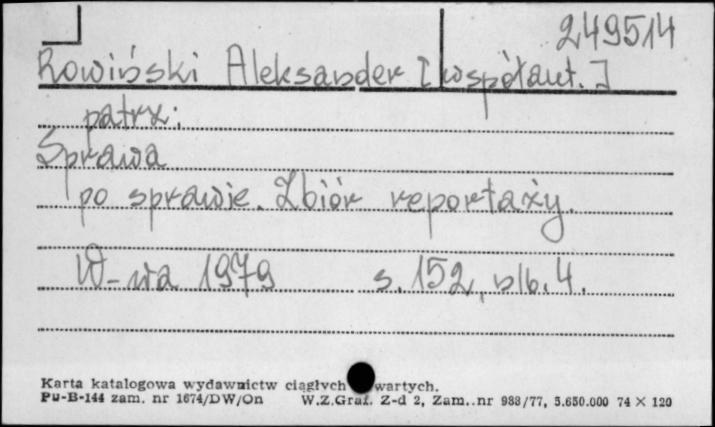 249514
Rowiński Aleksander [współaut.]
patrz:
Sprawa
po sprawie. Zbiór reportaży.
W-wa 1979 s. 152, nlb. 4.
Karta katalogowa wydawnictw ciągłych wartych.
Pu-B-144 zam. nr 1674/DW/On W.Z.Graf. Z-d 2, Zam..nr 988/77, 5.650.000 74 × 120